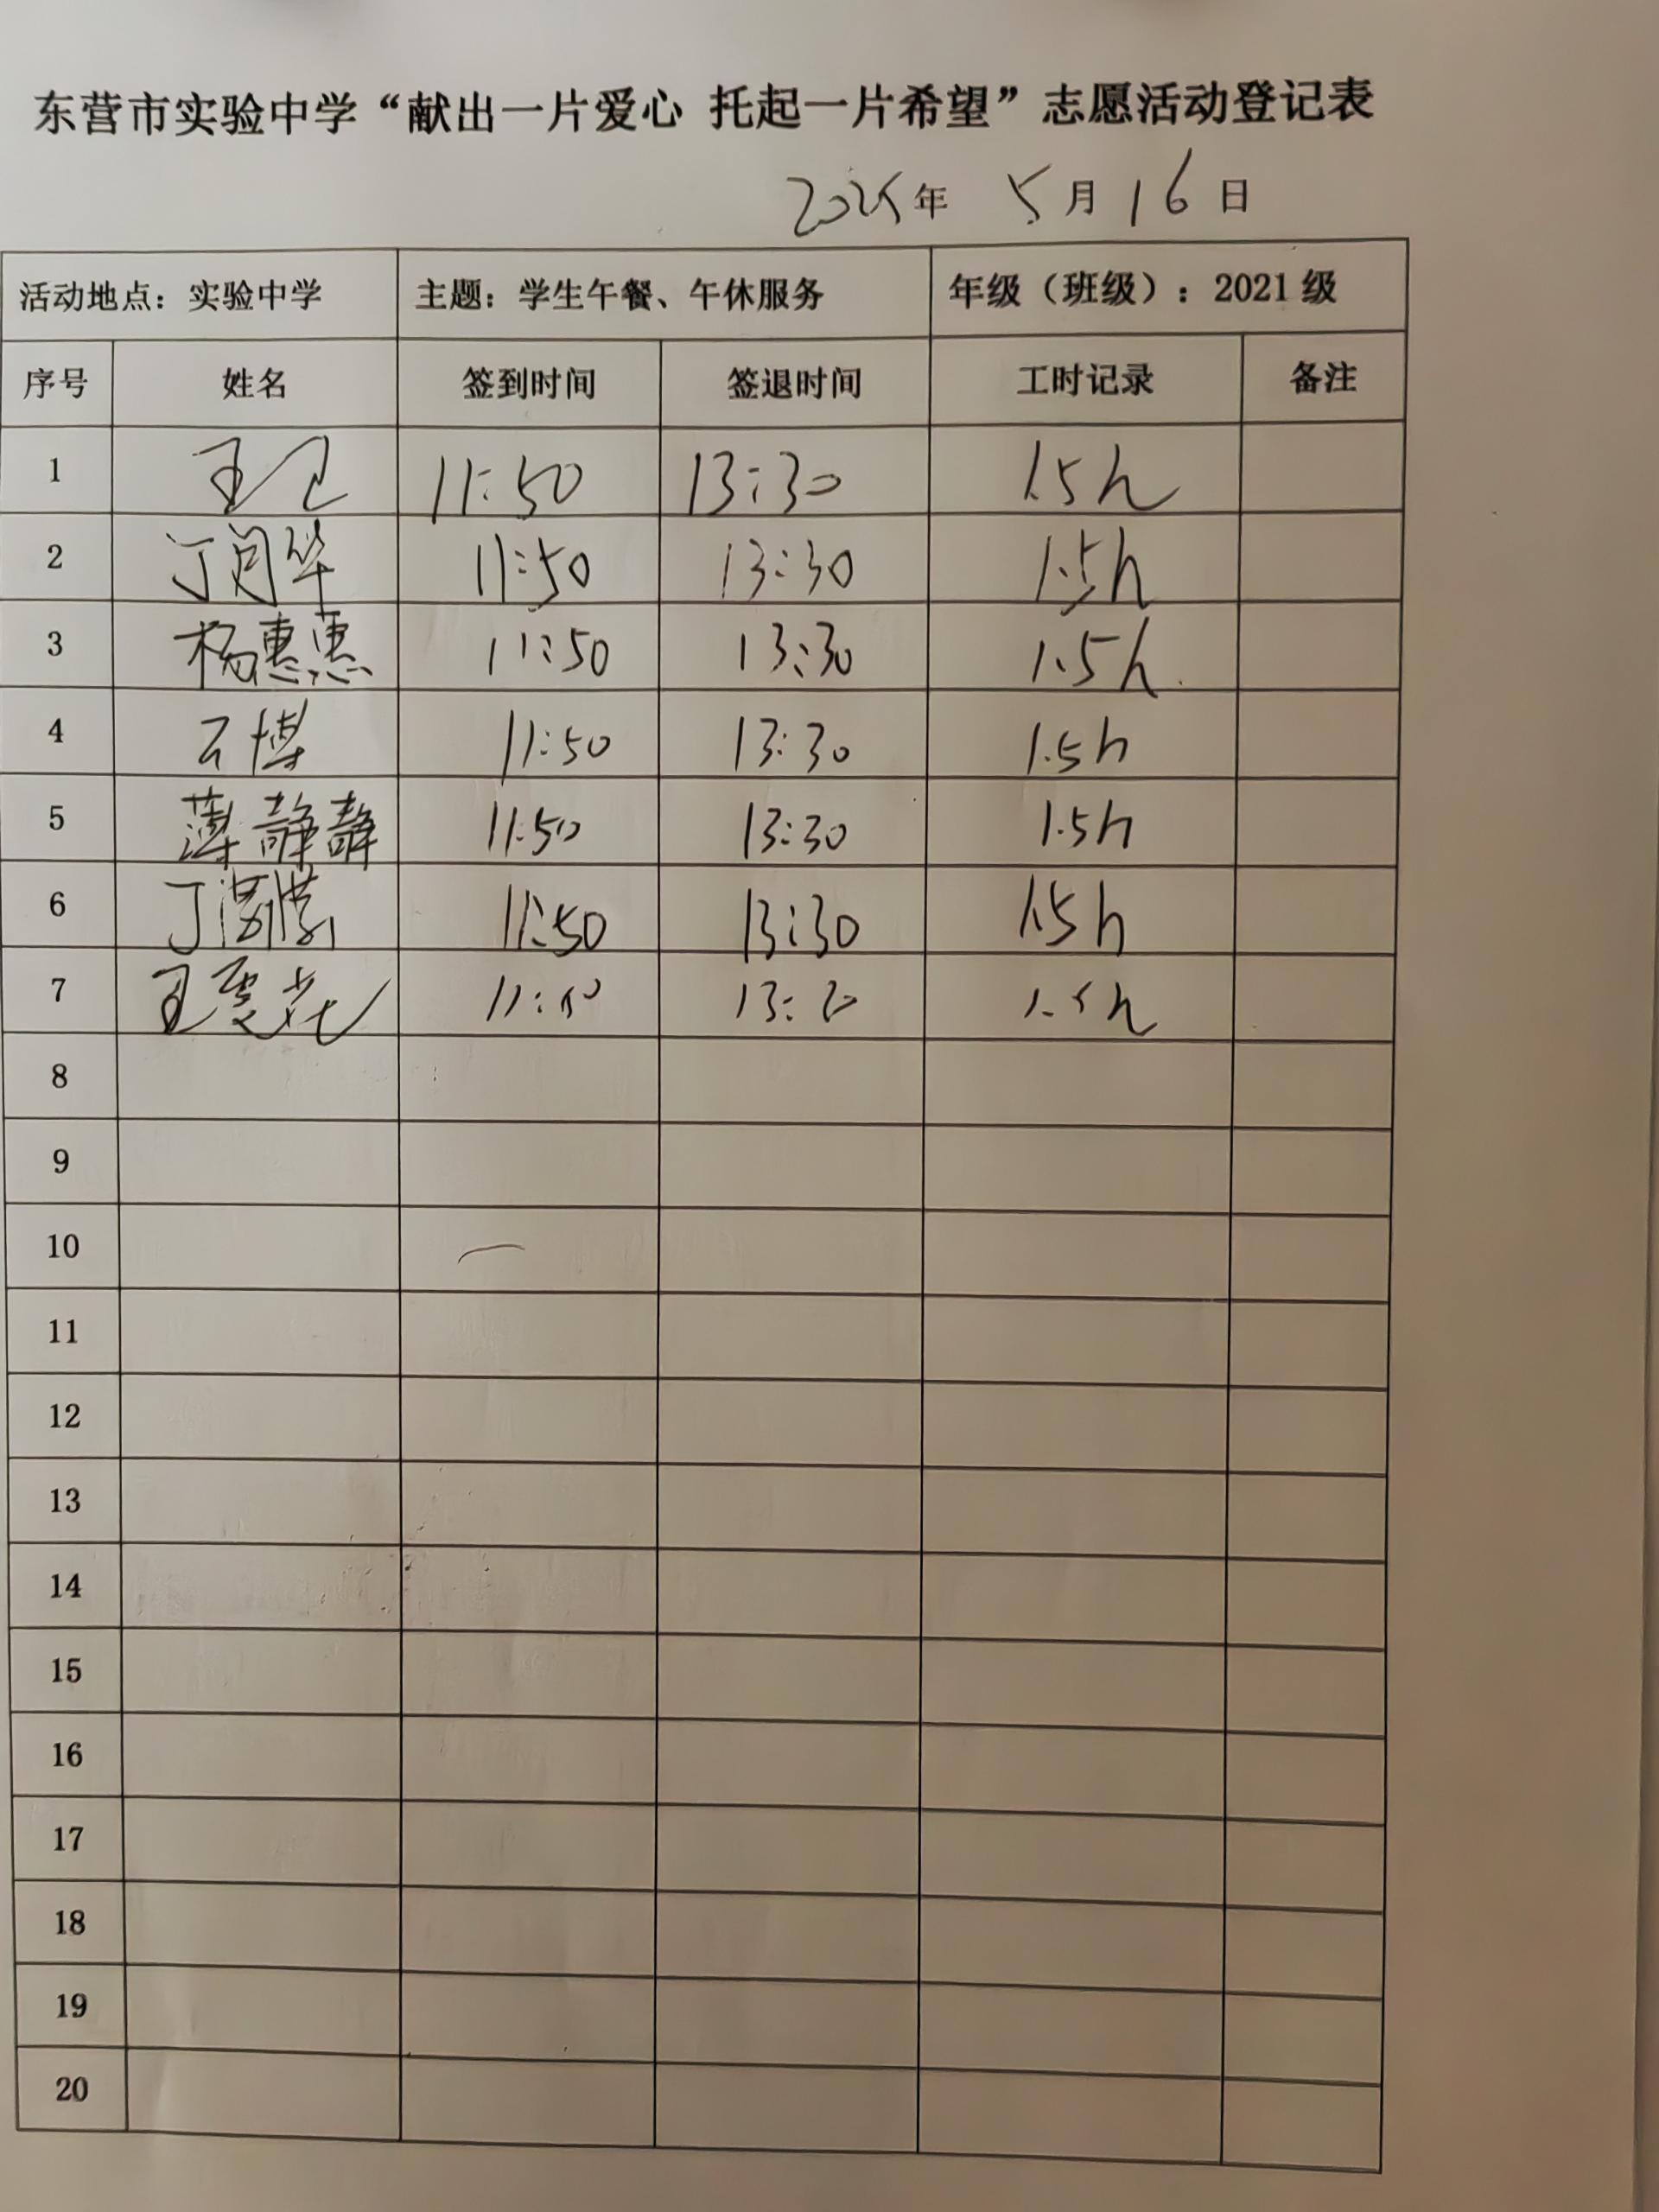 东营市实验中学“献出一片爱心 托起一片希望”志愿活动登记表
2025年 5月16日
活动地点：实验中学 主题：学生午餐、午休服务 年级（班级）：2021级
序号 姓名 签到时间 签退时间 工时记录 备注
1 王 11:50 13:30 1.5h
2 丁闫华 11:50 13:30 1.5h
3 杨惠惠 11:50 13:30 1.5h
4 云博 11:50 13:30 1.5h
5 薄静静 11:50 13:30 1.5h
6 丁 11:50 13:30 1.5h
7 王雯 11:50 13:30 1.5h
8
9
10
11
12
13
14
15
16
17
18
19
20